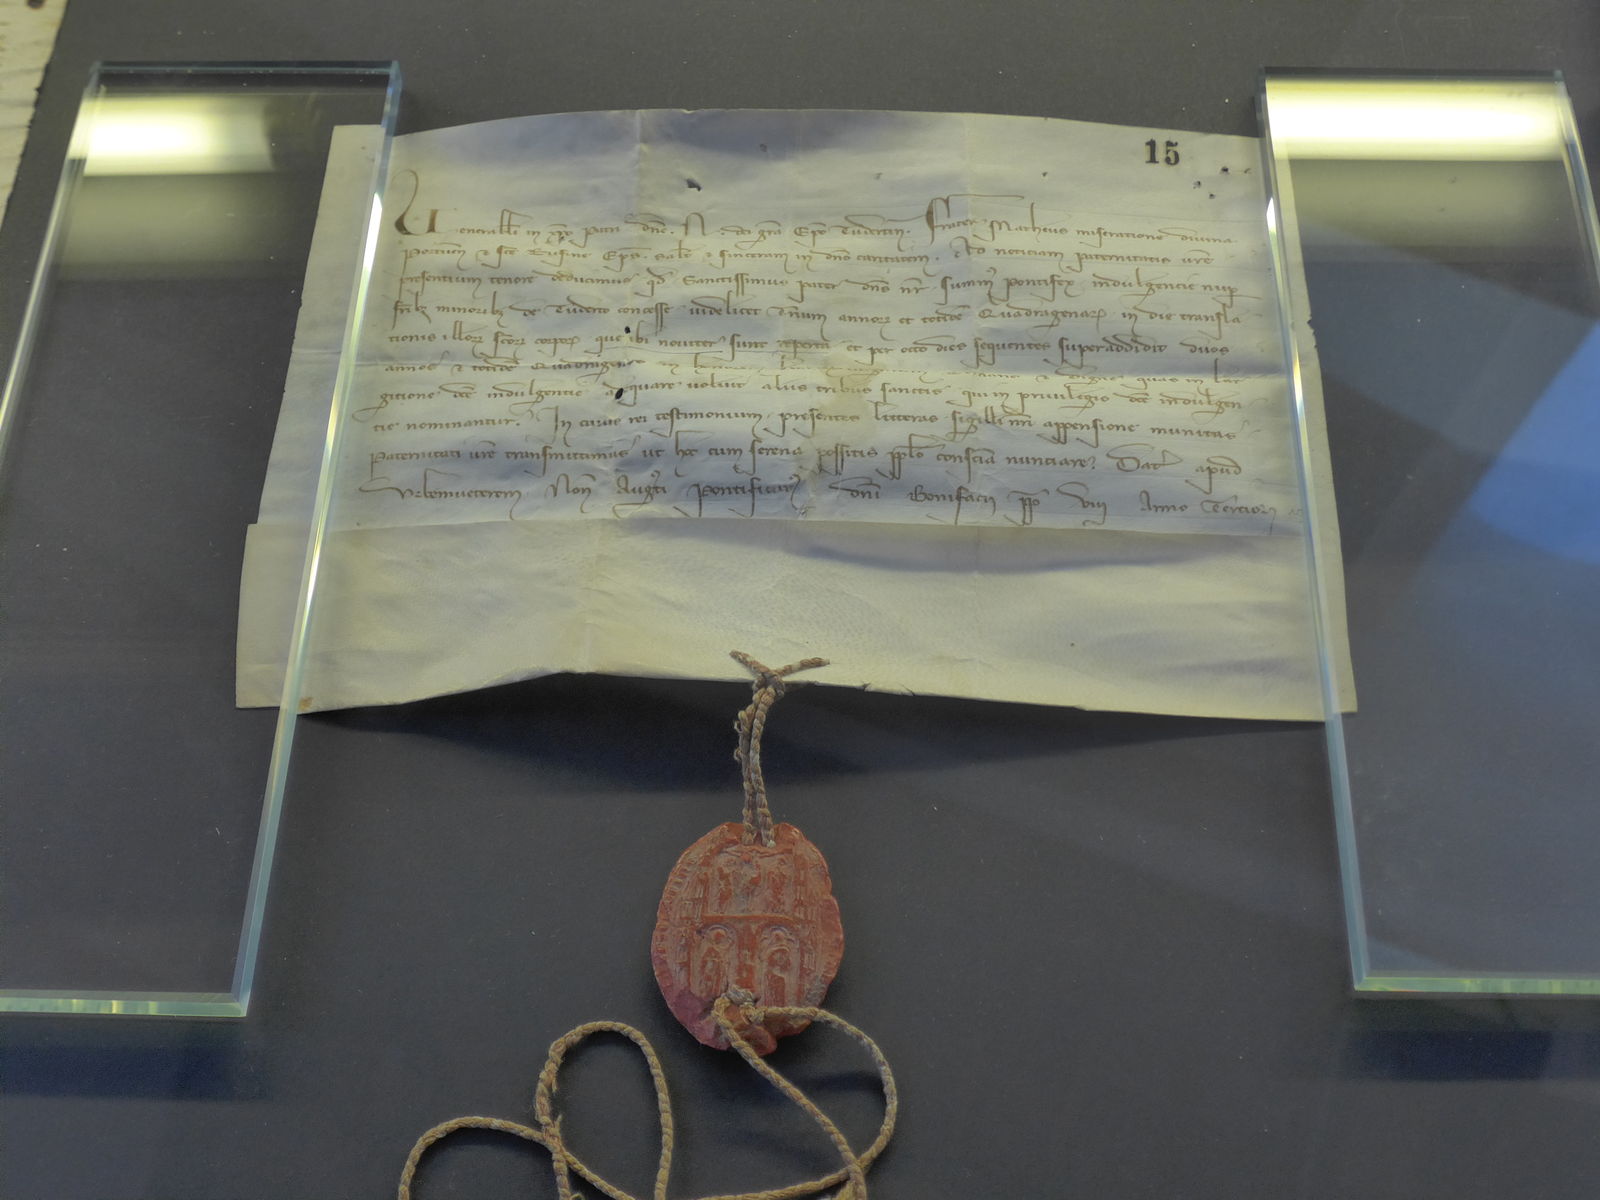 15
Uenerabili in xpo patri dno. N. dei gra Epo Tudertin. Frater Matheus miseratione diuina
Portuen & sce Rufine Eps. salt & sinceram in dno caritatem. Ad noticiam paternitatis ure
presentium tenore deducimus qd Sanctissimus pater dns nr summ pontifex indulgentie nup
frib minorib de Tuderto concesse uidelicet annum annor et totide Quadragenar in die transla
tionis illor scor corpor que ibi nouiter sunt reperta et per octo dies sequentes superaddidit duos
annos & totide Quadragenas quas in lar
gitione dce indulgentie adequare uoluit aliis tribus sanctis qui in priuilegio dce indulgen
tie nominantur. In cuius rei testimonium presentes litteras sigilli nri appensione munitas
Paternitati ure transmittimus ut hoc cum serena possitis pplo conscia nunciare. Dat apud
Urbemueterem Non Augusti Pontificatus dni Bonifacii pp viii Anno Tertio